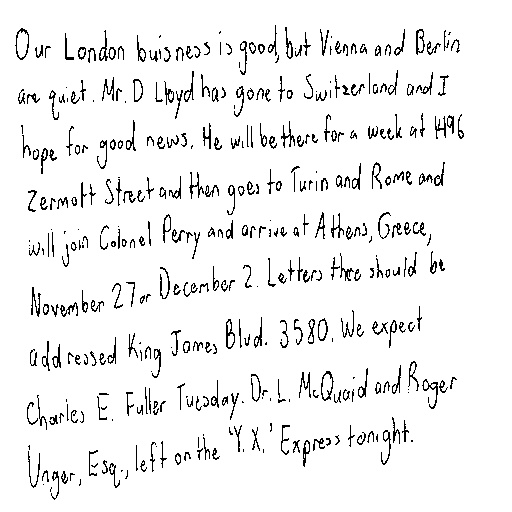 Our London buisness is good, but Vienna and Berlin
are quiet. Mr. D Lloyd has gone to Switzerland and I
hope for good news. He will be there for a week at 1496
Zermott Street and then goes to Turin and Rome and
will join Colonel Perry and arrive at Athens, Greece,
November 27 or December 2. Letters there should be
addressed King James Blvd. 3580. We expect
Charles E. Fuller Tuesday. Dr. L. McQuaid and Roger
Unger, Esq., left on the 'Y. X.' Express tonight.